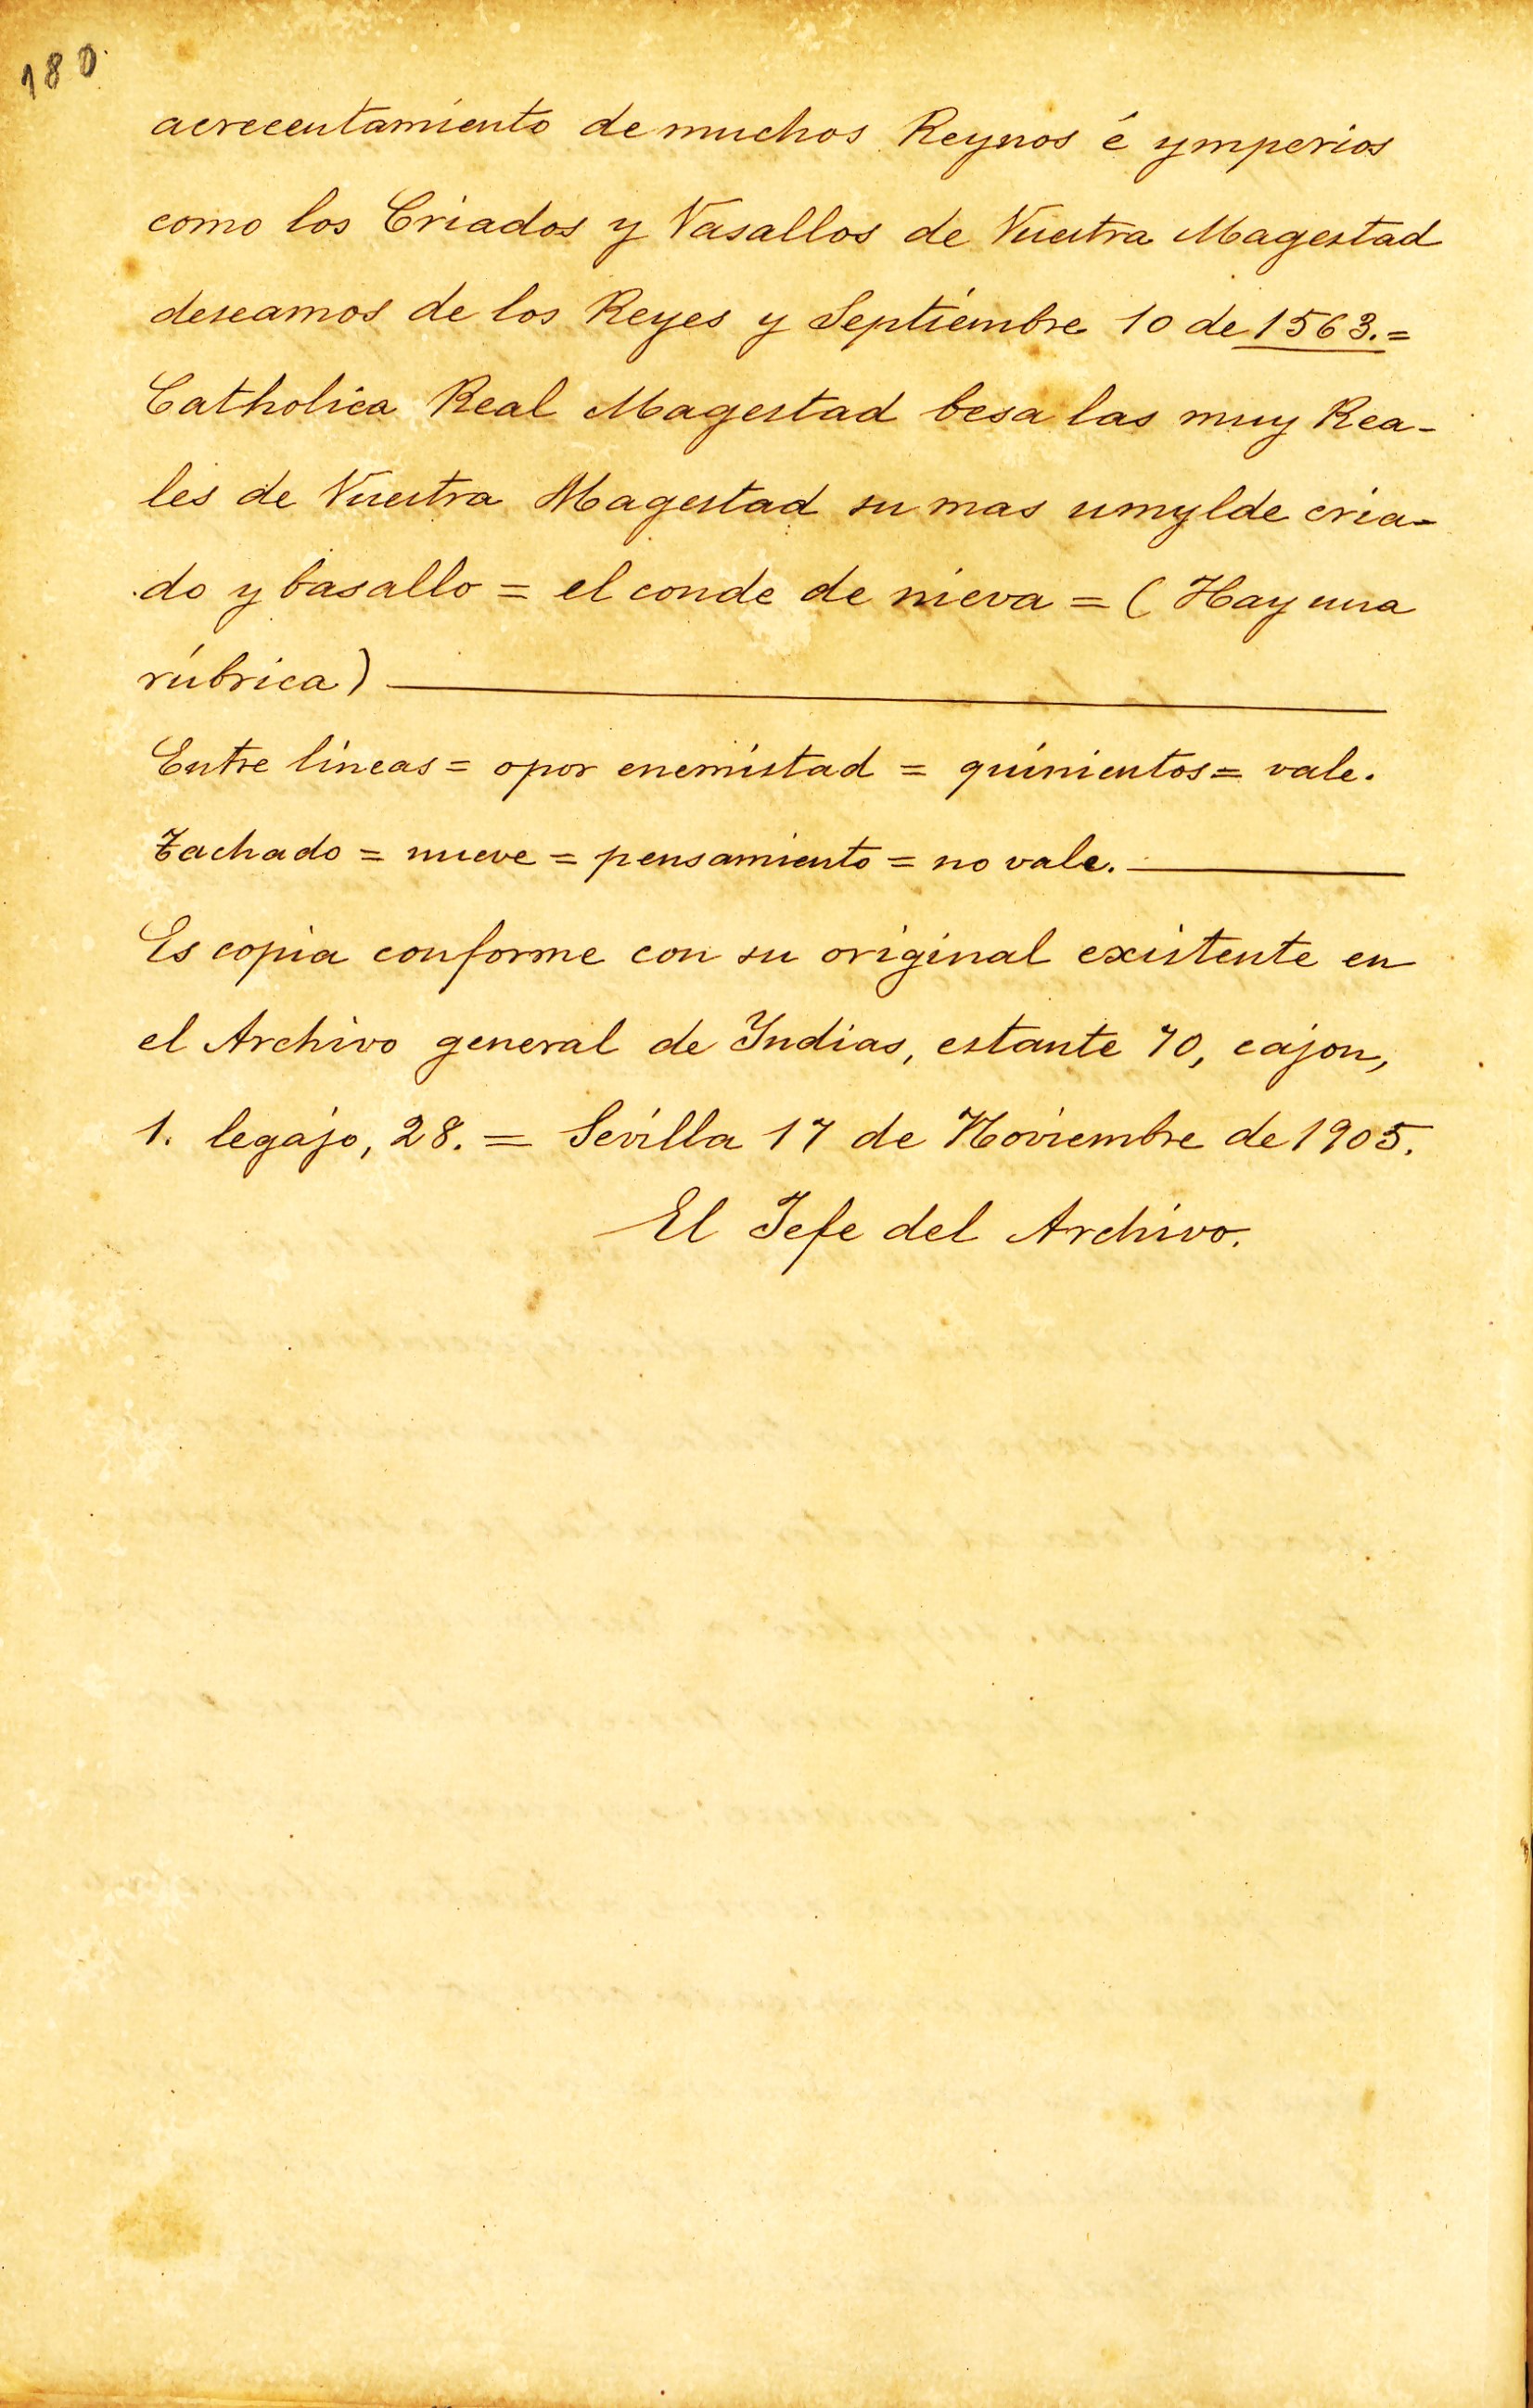 180.
acrecentamiento de muchos Reynos é ymperios
como los Criados y Vasallos de Vuestra Magestad
deseamos de los Reyes y Septiembre 10 de 1563.=
Catholica Real Magestad besa las muy Rea-
les de Vuestra Magestad su mas umylde cria-
do y basallo = el conde de nieva = (Hay una
rúbrica)
Entre lineas = o por enemistad = quinientos = vale.
Tachado = nueve = pensamiento = no vale.
Es copia conforme con su original existente en
el Archivo general de Indias, estante 70, cajon,
1. legajo, 28. = Sevilla 17 de Noviembre de 1905.
El Jefe del Archivo.